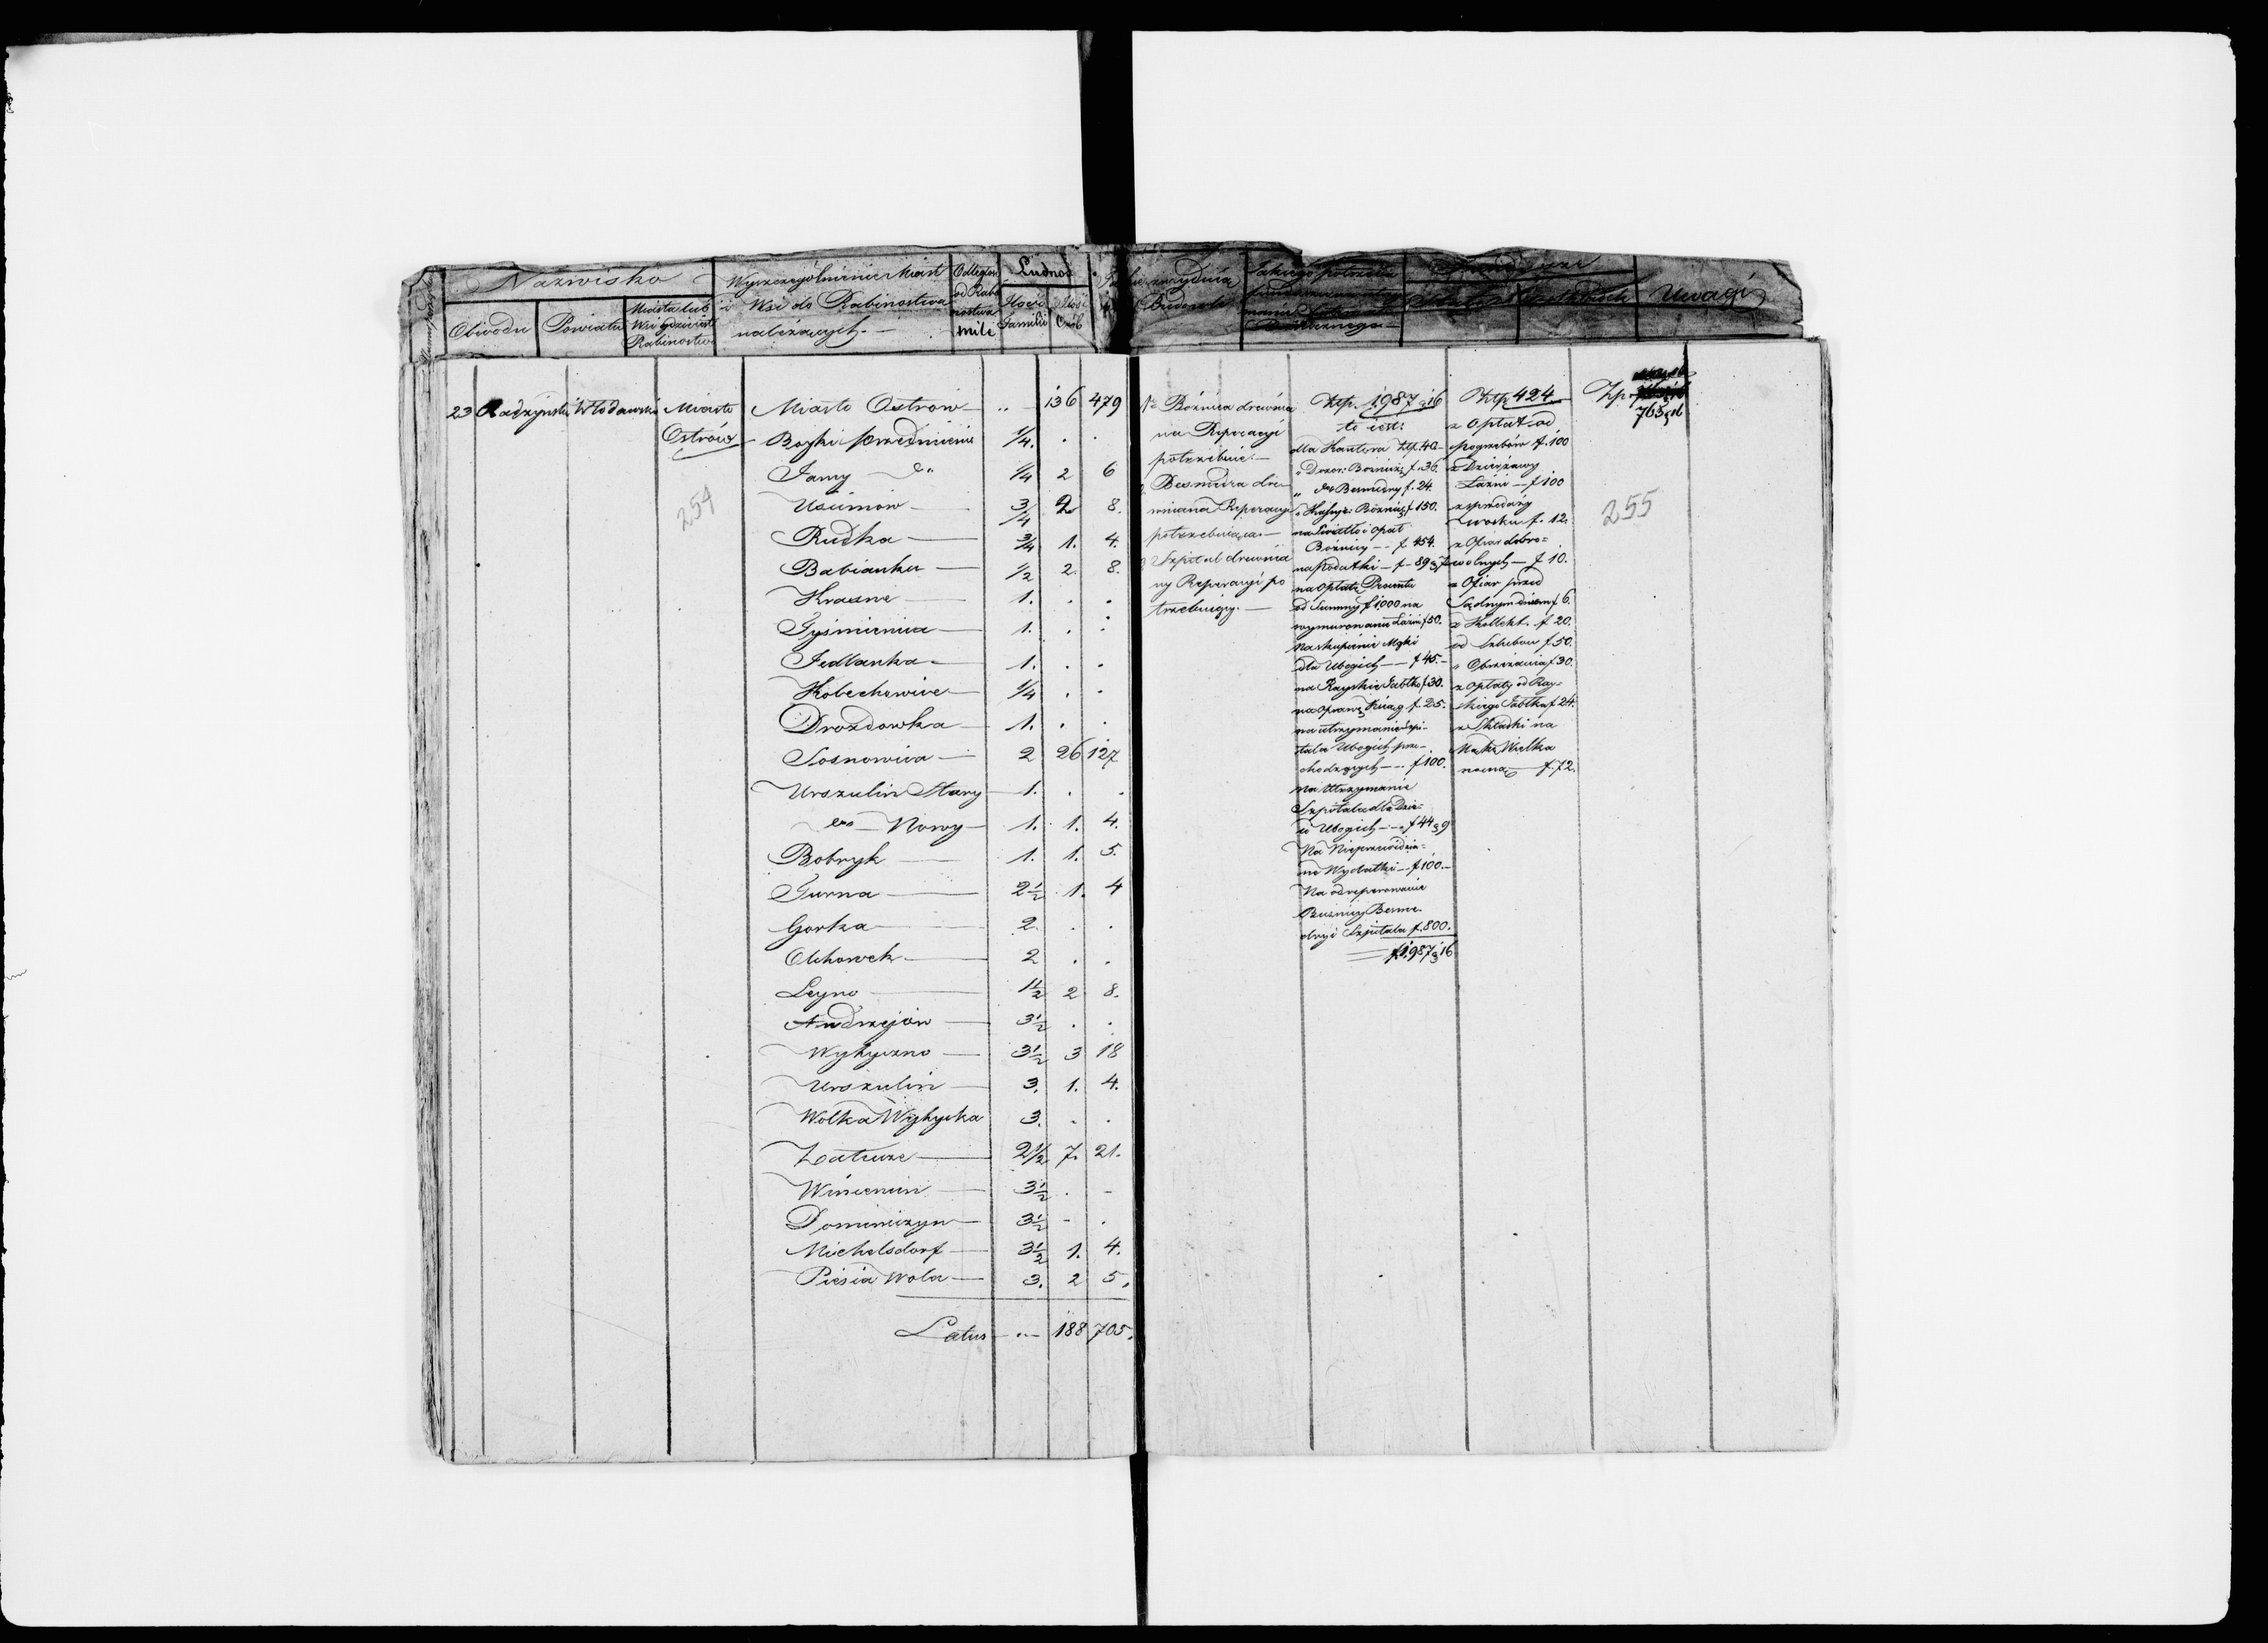 Nazwisko
Obwodu Powiatu Miasta lub Wsi gdzie jest Rabinostwo
Wyszczególnienie Miast
i Wsi do Rabinostwa
należących.-
Odległość od Rabinostwa mile
Ludność
Ilość Familii Ilość Osób
Budowle
Uwagi
23 Radzyński Włodawski Miasto Ostrów
254
Miasto Ostrów - 136 479
Bojki przedmieście 1/4. . .
Jamy do 1/4 2 6
Uścimów 3/4 2 8.
Rudka 3/4 1. 4.
Babianka 1/2 2. 8.
Krasne 1. . .
Tyśmienica 1. . .
Jedlanka 1. . .
Kolechowice 1/4 . .
Drozdowka 1. . .
Sosnowica 2 26 127
Urszulin Stary 1. . .
do Nowy 1. 1. 4.
Bobryk 1. 1. 5.
Turna 2 1/2 1. 4
Gorka 2. . .
Olchowek 2 . .
Leyno 1 1/2 2 8.
Andrzejów 3 1/2 . .
Wytyczno 3 1/2 3 18
Urszulin 3. 1. 4.
Wolka Wytycka 3. . .
Zatucze 2 1/2 7. 21.
3 1/2 . -
Dominiczyn 3 1/2 - .
Michelsdorf 3 1/2 1. 4.
Piesia Wola 3. 2 5.
Latus 188 705.
1o Bóżnica drewnia
na Reperacyi
potrzebuie.-
Besmedra dre-
wniana Reperacyi
potrzebuiąca.-
3 Szpital drewnia
ny Reperacyi po
trzebuiący.-
Złp. 1,987 g 16
to iest:
dla Kantora Złp. 40-
" Dozor: Bożnicy f. 36.
" do Besmedry f. 24.
" Bożnicy f 150.
na Swiatło i opał
Bożnicy - f. 454.
na Podatki - f - 89 g 7
na opłatę Procentu
od Summy f 1000 na
wymurowanie Łaźni f 50.
na skupienie Mąki
dla Ubogich - f 45.-
na Rayskie Jabłko f 30.
na oprawę Xiąg f. 25.
na utrzymanie Szpi-
tala Ubogich prze-
chodzących - f 100.
na Utrzymanie
Szpitala dla Dzie-
ci Ubogich - f 44 g 9
Na Nieprzewidzia-
ne Wydatki - f 100.-
Na odreperowanie
Bużnicy Besme-
dry i Szpitala f. 800.
f 1,987 g 16
Złp 424
z Opłat od
pogrzebów f. 100
z Dzierżawy
Łaźni - f 100
z sprzedaży
wosku f. 12.
z Ofiar dobro-
wolnych - f 10.
z Ofiar przed
Sądnym dniem f 6.
z Kollekt. f 20.
od Szlubów f. 50.
" Obrzezania f 30.
z opłaty od Ray-
skiego Jabłka f 24.
z Składki na
Mąkę Wielka
nocną - f. 72.
Zp.
763 g 16
255